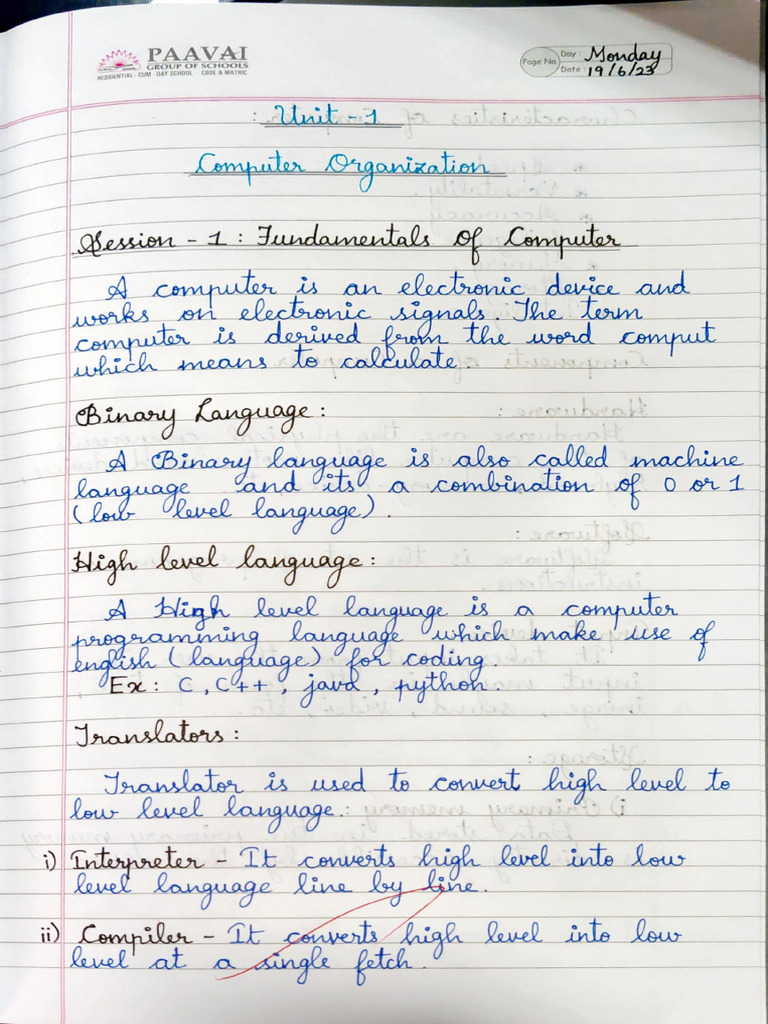 PAAVAI
GROUP OF SCHOOLS
RESIDENTIAL - CUM - DAY SCHOOL - CBSE & MATRIC
Page No.
Day: Monday
Date: 19/6/23
Unit - 1
Computer Organization
Session - 1 : Fundamentals of Computer
A computer is an electronic device and
works on electronic signals. The term
computer is derived from the word comput
which means to calculate.
Binary Language :
A Binary language is also called machine
language and its a combination of 0 or 1
(low level language).
High level language :
A High level language is a computer
programming language which make use of
english (language) for coding.
Ex: C, C++, java, python.
Translators :
Translator is used to convert high level to
low level language.
i) Interpreter - It converts high level into low
level language line by line.
ii) Compiler - It converts high level into low
level at a single fetch.